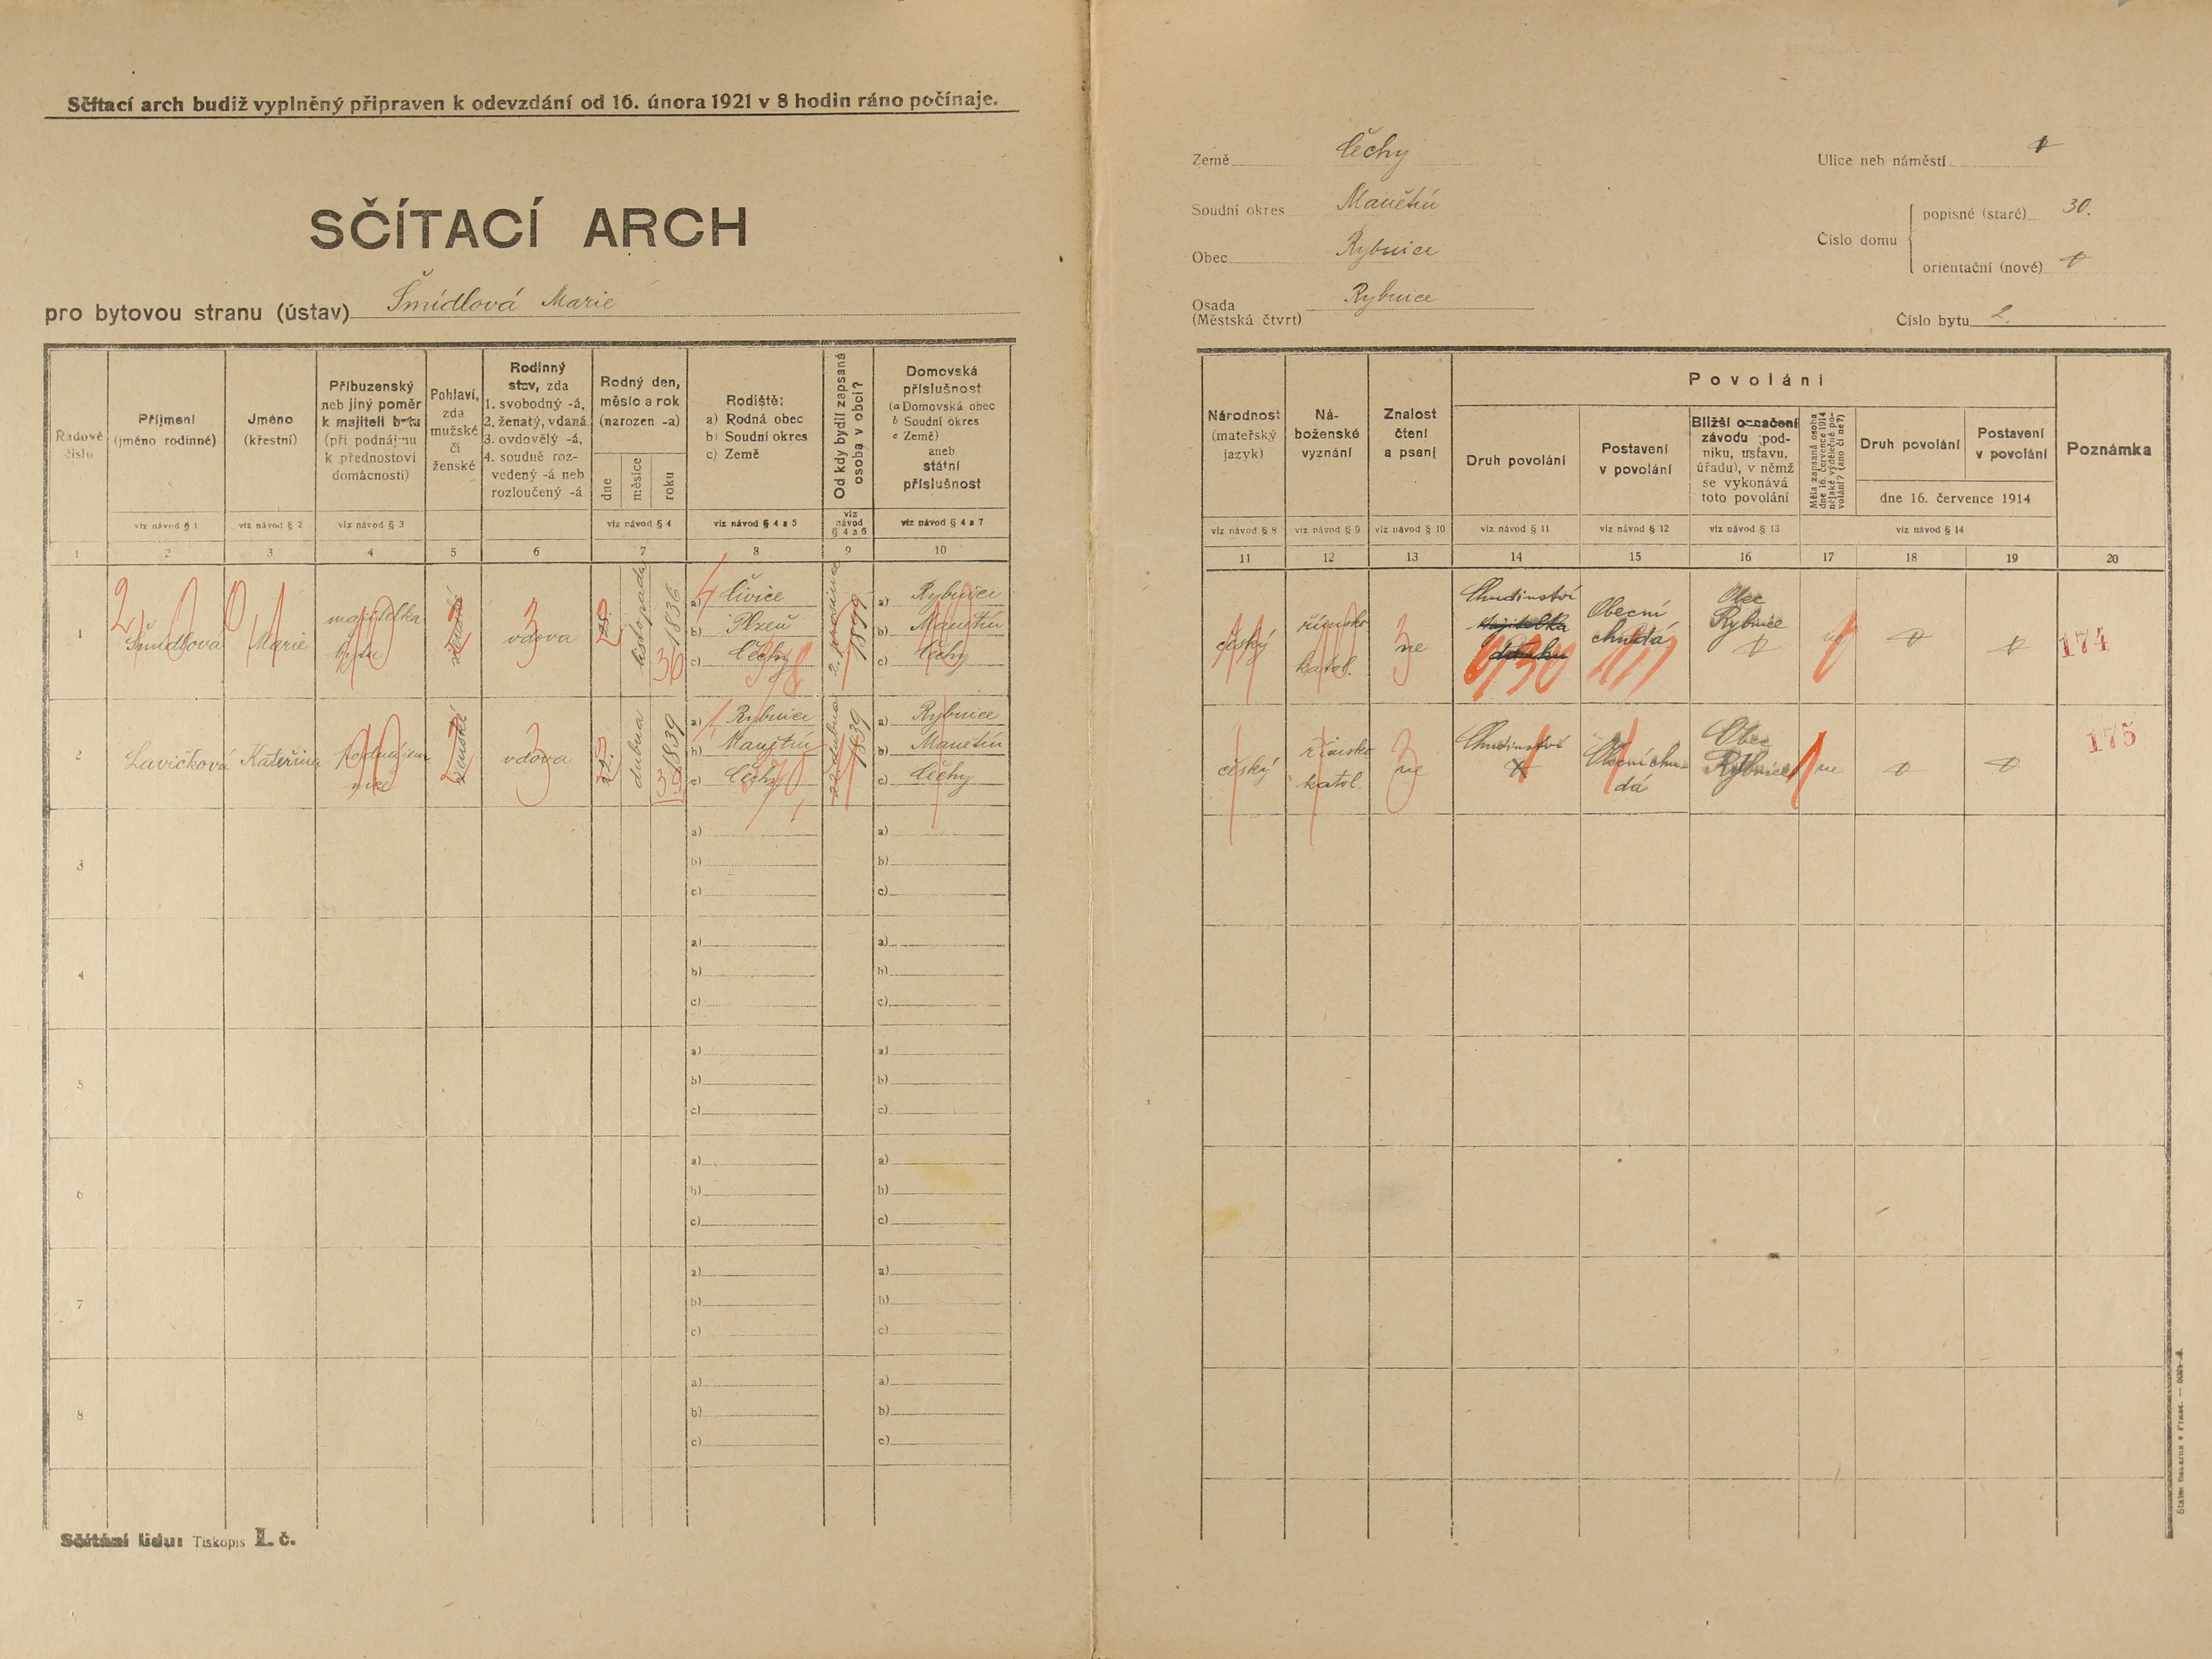 Sčítací arch budiž vyplněný připraven k odevzdání od 16. února 1921 v 8 hodin ráno počínaje.
SČÍTACÍ ARCH
pro bytovou stranu (ústav) Šmídlová Marie
Země Čechy
Soudní okres Manětín
Obec Rybnice
Osada Rybnice
(Městská čtvrt)
Ulice neb náměstí
Číslo domu
popisné (staré) 30.
orientační (nové)
Číslo bytu 2.
Řadové číslo
Příjmení
(jméno rodinné)
viz návod § 1
Jméno
(křestní)
viz návod § 2
Příbuzenský
neb jiný poměr
k majiteli bytu
(při podnájmu
k přednostovi
domácnosti)
viz návod § 3
Pohlaví,
zda
mužské
či
ženské
Rodinný
stav, zda
1. svobodný -á,
2. ženatý, vdaná
3. ovdovělý -á,
4. soudně roz-
vedený -á neb
rozloučený -á
Rodný den,
měsíc a rok
(narozen -a)
dne
měsíce
roku
viz návod § 4
Rodiště:
a) Rodná obec
b) Soudní okres
c) Země
viz návod § 4 a 5
Od kdy bydlí zapsaná
osoba v obci?
viz
návod
§ 4 a 6
Domovská
příslušnost
(a Domovská obec
b Soudní okres
c Země)
aneb
státní
příslušnost
viz návod § 4 a 7
1 2 3 4 5 6 7 8 9 10
Národnost
(mateřský
jazyk)
viz návod § 8
Ná-
boženské
vyznání
viz návod § 9
Znalost
čtení
a psaní
viz návod § 10
Povolání
Druh povolání
viz návod § 11
Postavení
v povolání
viz návod § 12
Bližší označení
závodu (pod-
niku, ústavu,
úřadu), v němž
se vykonává
toto povolání
viz návod § 13
Měla zapsaná osoba
dne 16. července 1914
nějaké výdělečné po-
volání? (ano či ne?)
Druh povolání
Postavení
v povolání
dne 16. července 1914
viz návod § 14
Poznámka
11 12 13 14 15 16 17 18 19 20
1
Šmídlová
Marie
majitelka
bytu
ženské
vdova
28.
listopadu
1836
a) Čivice
b) Plzeň
c) Čechy
2. prosince
1899
a) Rybnice
b) Manětín
c) Čechy
český
římsko
katol.
ne
Chudinství
Majitelka
domku
Obecní
chudá
Obec
Rybnice
174
2
Lavičková
Kateřina
podnájem
nice
ženské
vdova
dubna
1839
a) Rybnice
b) Manětín
c) Čechy
dubna
1839
a) Rybnice
b) Manětín
c) Čechy
český
římsko
katol.
ne
Chudinství
Obecní chu-
dá
Obec
Rybnice
ne
175
3
a)
b)
c)
a)
b)
c)
4
a)
b)
c)
a)
b)
c)
5
a)
b)
c)
a)
b)
c)
6
a)
b)
c)
a)
b)
c)
7
a)
b)
c)
a)
b)
c)
8
a)
b)
c)
a)
b)
c)
Sčítání lidu: Tiskopis I. č.